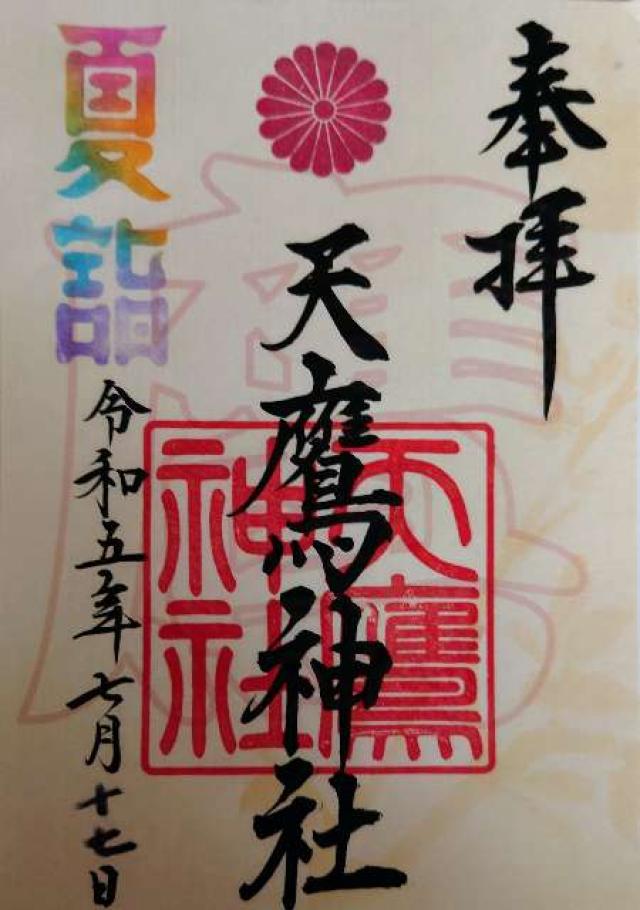 奉拝
天鷹神社
天鷹神社
夏詣
令和五年七月十七日